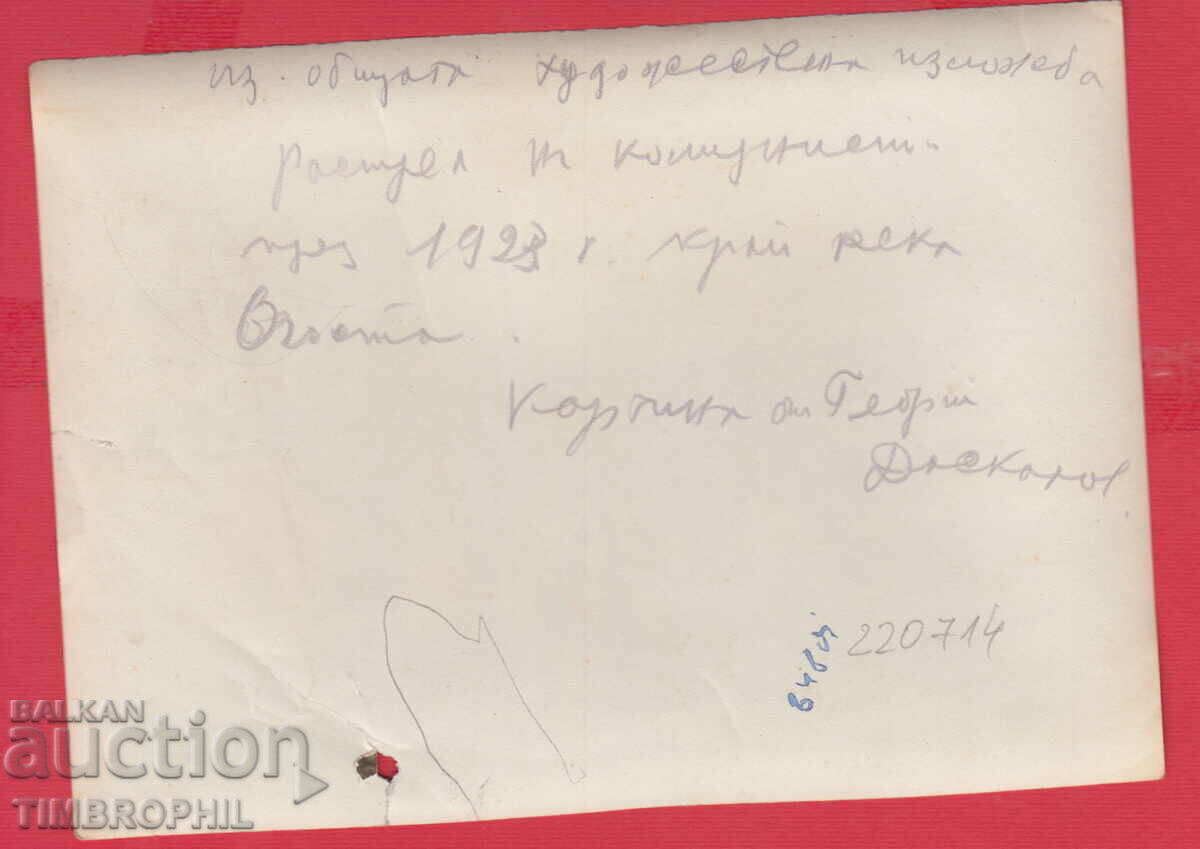 из. общата художествена изложба
Растрел на комунист.
през 1923 г. край река
Огоста.
Картина от Георги
Даскалов.
220714
BALKAN
auction
TIMBROPHIL